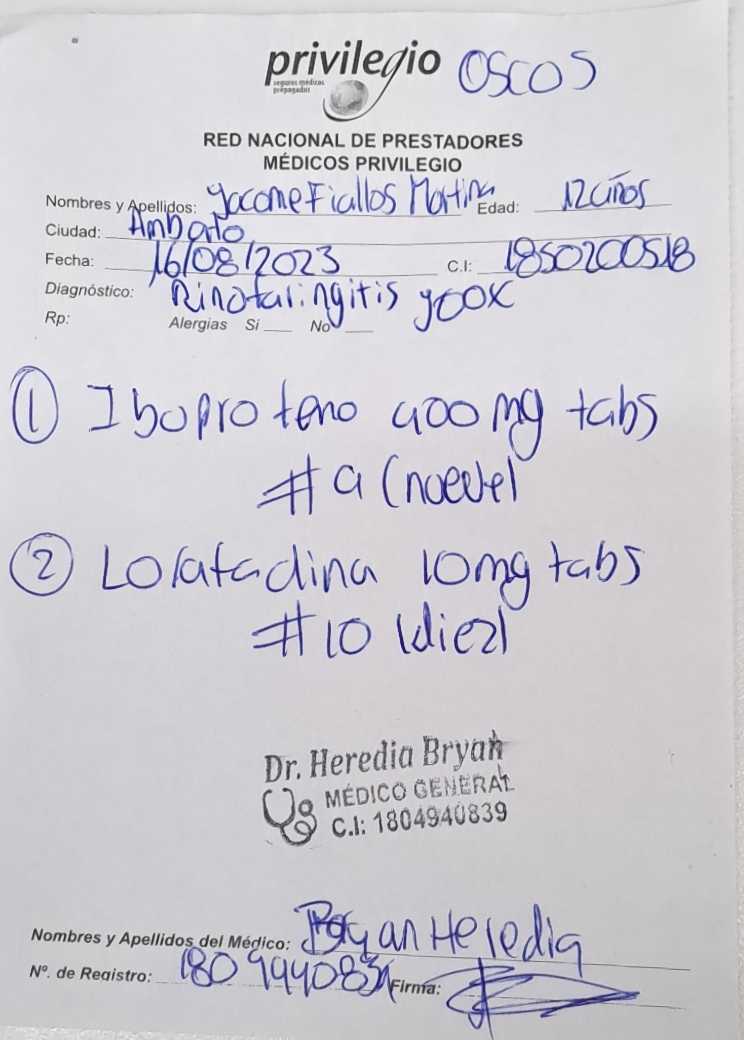 privilegio OSCOS
seguros médicos
prepagados
RED NACIONAL DE PRESTADORES
MÉDICOS PRIVILEGIO
Nombres y Apellidos: Jacome Fiallos Martina Edad: 12 años
Ciudad: Ambato
Fecha: 16/08/2023 C.I: 1850200518
Diagnóstico: Rinofaringitis J00X
Rp: Alergias Si ___ No ___
① Ibuprofeno 400 mg tabs
# 9 (nueve)
② Loratadina 10mg tabs
# 10 (diez)
Dr. Heredia Bryan
MÉDICO GENERAL
C.I: 1804940839
Nombres y Apellidos del Médico: Bryan Heredia
Nº. de Registro: 1804940839 Firma: